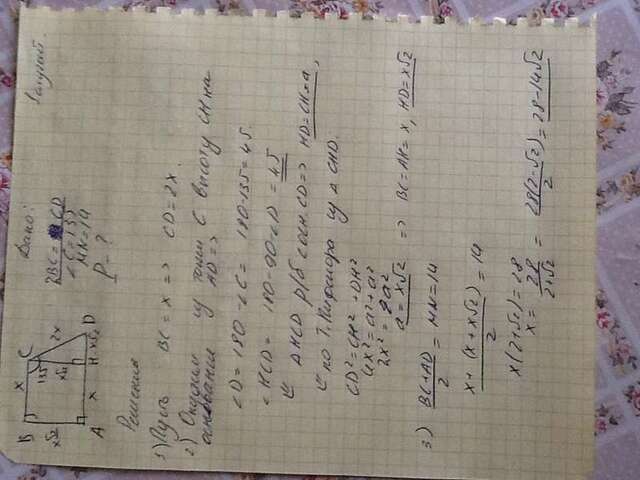 B x C
135
2x
x√2
x√2
A x H x√2 D
Дано:
2BC = CD
∠C = 135
MN = 14
P = ?
Решение
1) Пусть BC = x => CD = 2x.
2) Опустим из точки C высоту CH на
основание AD =>
∠D = 180 - ∠C = 180 - 135 = 45.
∠HCD = 180 - 90 - ∠D = 45
△HCD р/б с осн. CD => HD = CH = a,
по т. Пифагора из △CHD.
CD² = CH² + DH²
4x² = a² + a²
2x² = a²
a = x√2 => BC = AH = x, HD = x√2
3) BC + AD / 2 = MN = 14
x + (x + x√2) / 2 = 14
x(2 + √2) = 28
x = 28 / 2+√2 = 28(2-√2) / 2 = 28 - 14√2